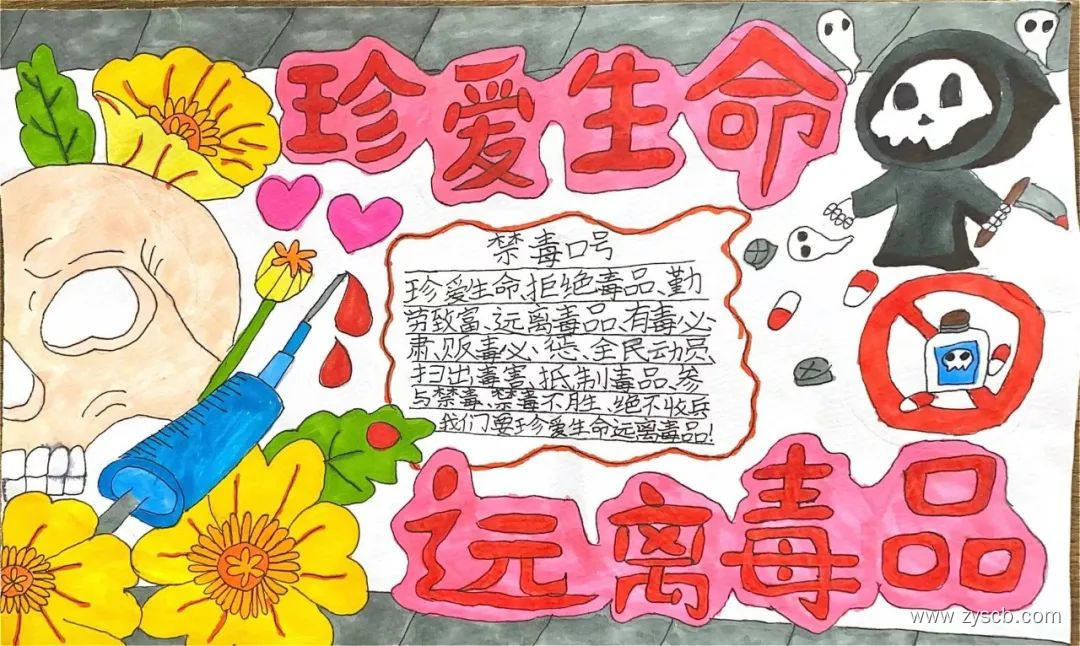 珍爱生命
禁毒口号
珍爱生命、拒绝毒品、勤
劳致富、远离毒品、有毒必
肃、贩毒必惩、全民动员、
扫出毒害、抵制毒品、参
与禁毒、禁毒不胜、绝不收兵
我们要珍爱生命远离毒品!
远离毒品
www.zyscb.com